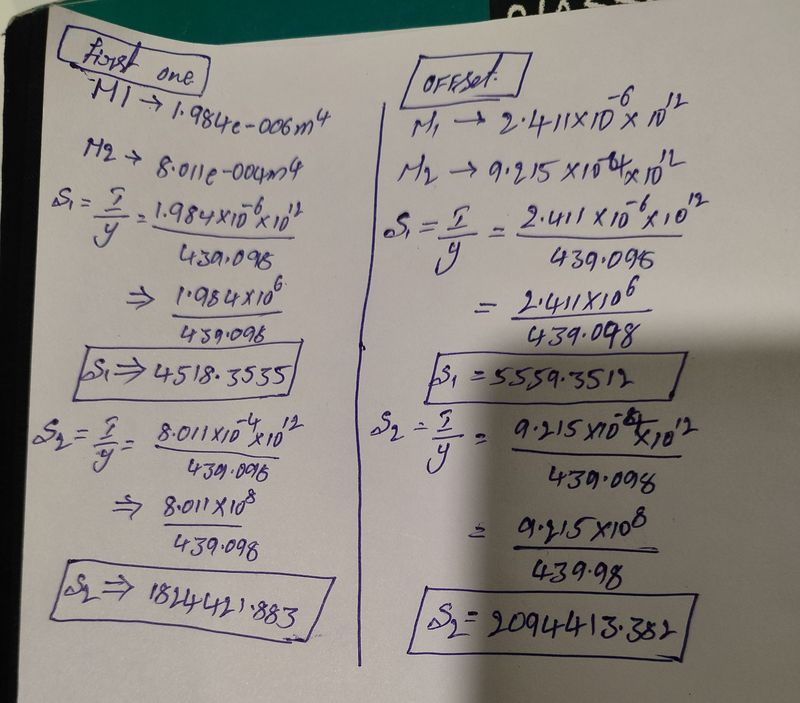 First one
M1 → 1.984e-006m⁴
M2 → 8.011e-004m⁴
S₁ = I/y = 1.984×10⁻⁶×10¹² / 439.098
⇒ 1.984×10⁶ / 439.098
S₁ ⇒ 4518.3535
S₂ = I/y = 8.011×10⁻⁴×10¹² / 439.098
⇒ 8.011×10⁸ / 439.098
S₂ ⇒ 1824421.883
OFFset.
M₁ → 2.411×10⁻⁶×10¹²
M₂ → 9.215×10⁻⁴×10¹²
S₁ = I/y = 2.411×10⁻⁶×10¹² / 439.098
= 2.411×10⁶ / 439.098
S₁ = 5559.3512
S₂ = I/y = 9.215×10⁻⁴×10¹² / 439.098
= 9.215×10⁸ / 439.98
S₂ = 2094413.382